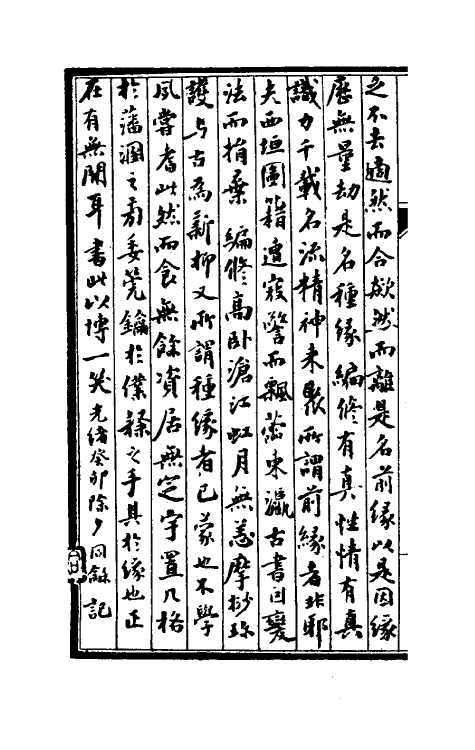 之不去適然而合欻然而離是名前緣以是因緣
歷無量劫是名種緣 編修有真性情有真
識力千載名流精神来聚所謂前緣者非耶
夫西垣圖籍遭寇警而飄蕩東瀛古書因變
法而捐棄 編修高卧滄江虹月無恙摩抄珎
護与古為新抑又所謂種緣者已蒙也不學
風嘗耆此然而食無餘資居無定宇置几格
於藩溷之旁委筦鑰於僕隸之手其於緣也正
在有無間耳書此以博一笑光緒癸卯除夕同龢記